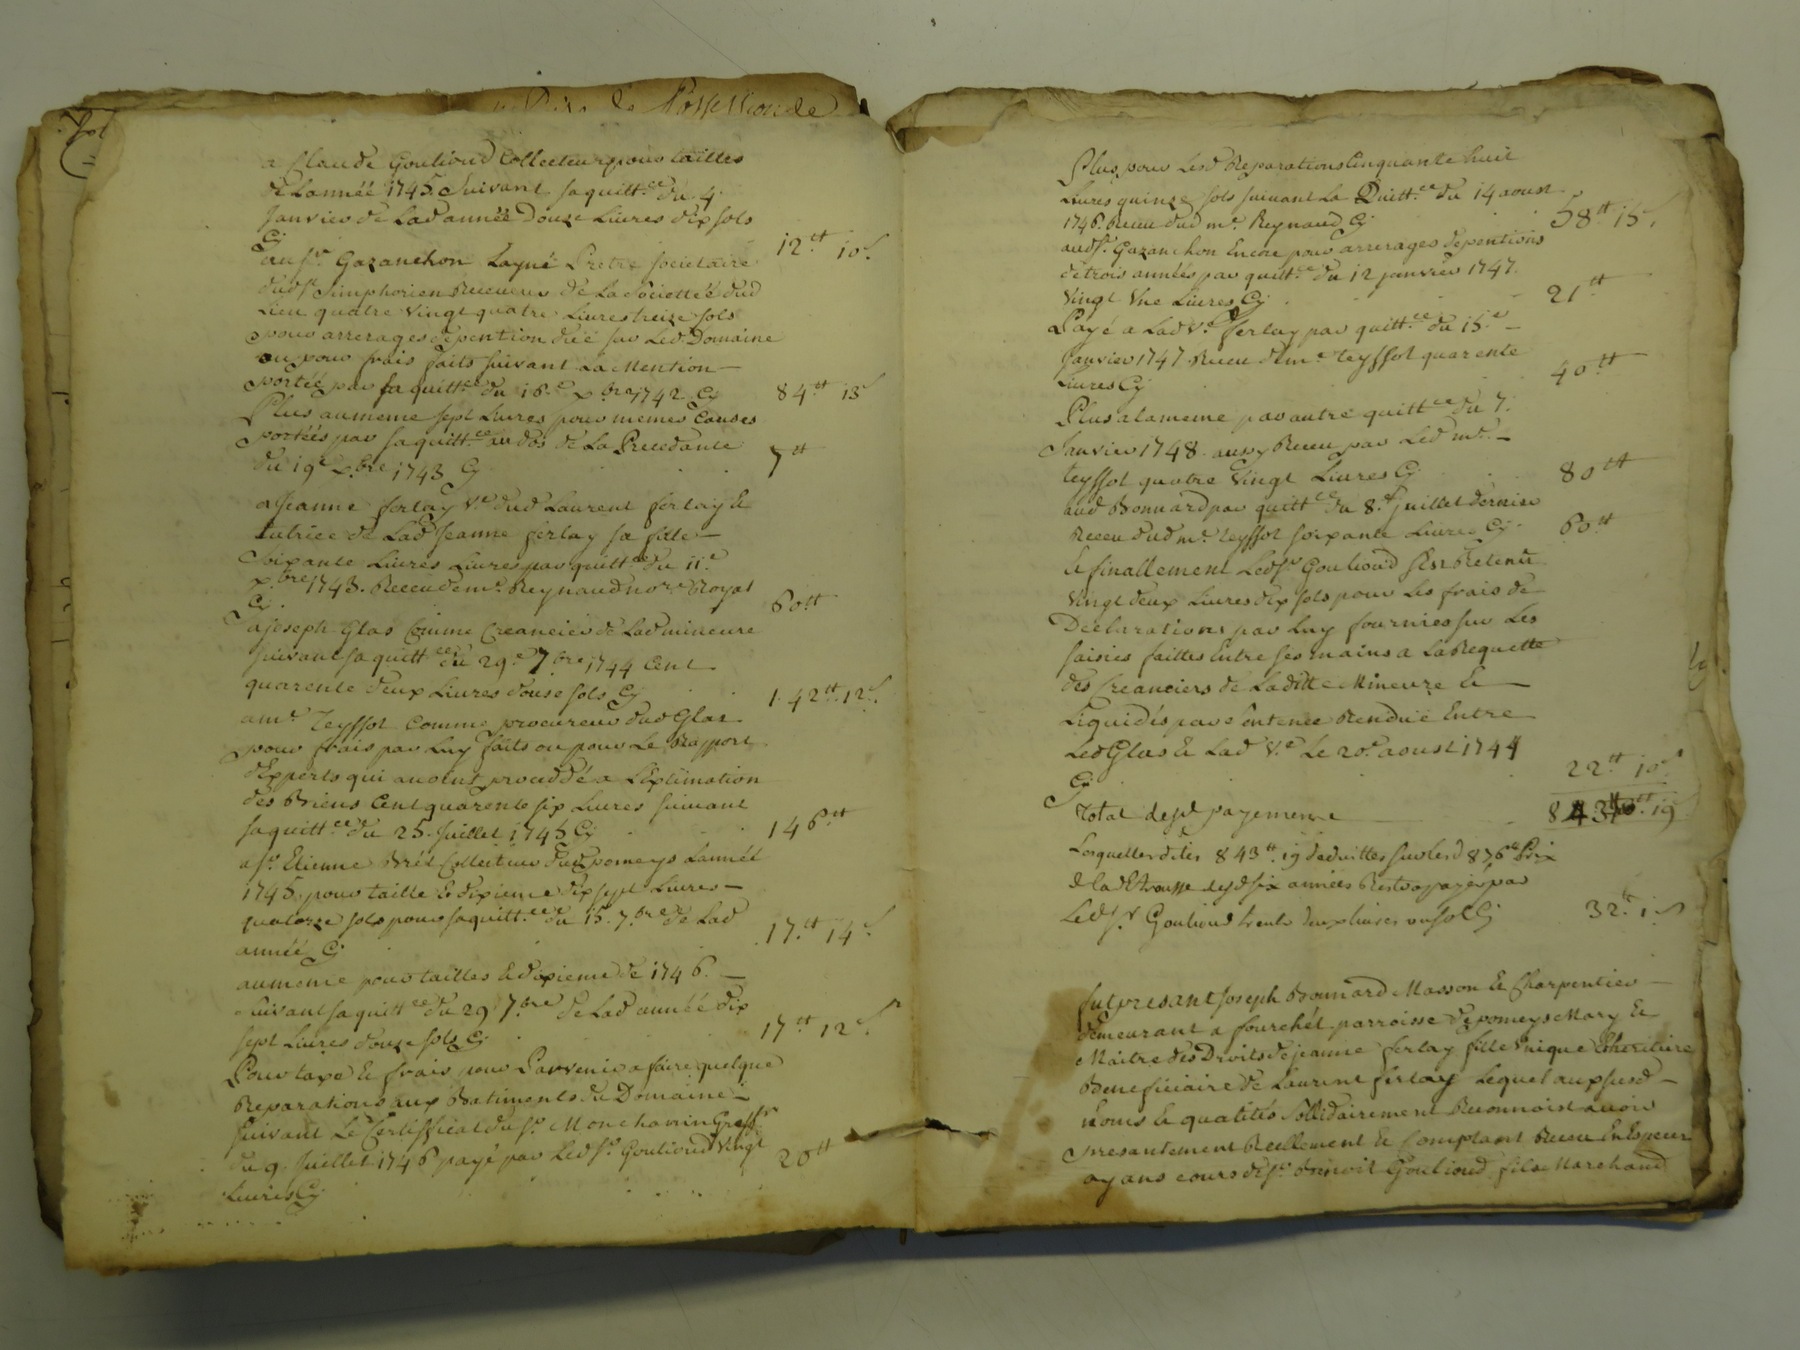 de Possession de
a Claude Goutioud Collecteur pour tailles
de Lannéé 1745. Suivant sa quitt.ce du 4.
Janvier de Lad année Douze Livres dix sols
Cy 12tt 10s
au Sr. Gazanchon Layné Pretre societaire
dud St. Simphorien Receveur de La Societtéé dud
Lieu quatre vingt quatre Livres treize sols
pour arrerages de pention düe sur Led Domaine
ou pour frais faits suivant La Mention
portéé par sa quitt.ce du 16.e xbre 1742 Cy 84tt 13s
Plus au meme sept Livres pour memes Causes
portéés par sa quitt.ce au dos de La Precedante
du 19e xbre 1743 Cy 7tt
a Jeanne ferlay Ve dud Laurent ferlay &
tutrice de Lad Jeanne ferlay sa fille
Soixante Livres Livres par quitt.ce du 11e
xbre 1743. Receu de me. Reynaud nore Royal
Cy 60tt
a Joseph Glas Comme Creancier de Lad mineure
suivant sa quitt.ce du 29.e 7bre 1744 Cent
quarente deux Livres douse sols Cy 142tt 12s.
a me. Teyssot Comme procureur dud Glas
pour frais par Luy faits ou pour Le Rapport
dExperts qui avoint proceddé a LExtimation
des Biens Cent quarente six Livres suivant
sa quitt.ce du 25. Juillet 1745 Cy 146tt
a Sr. Etienne Collecteur de Pomeys Lannéé
1745. pour taille & dixieme dix sept Livres
quatorze sols pour sa quitt.ce du 15. 7bre de Lad
annéé Cy 17.tt 14s
au meme pour tailles & dixieme de 1746.
suivant sa quitt.ce du 29 7bre de Lad annéé dix
sept Livres douze sols Cy 17tt 12s
Pour taxe & frais pour Parvenir a faire quelque
Reparations aux Batiments du Domaine
suivant Le Certifficat du Sr. Monchanin Greffr
du 9. Juillet 1746 payé par Led Sr. Goutioud Vingt
Livres Cy 20tt
Plus pour Lesd Reparations Cinquante huit
Livres quinze sols suivant La Quitt.ce du 14 aoust
1746. Receu dud me. Reynaud Cy 58tt 15s.
aud Sr. Gazanchon Encore pour arrerages de pentions
de trois annéés par quitt.ce du 12 janvier 1747.
Vingt Une Livres Cy 21tt
Payé a Lad Ve ferlay par quitt.ce du 15.e
Janvier 1747 Receu de me teyssot quarente
Livres Cy 40tt
Plus a la meme par autre quitt.ce du 7.
Janvier 1748. aussy Receu par Led me.
teyssot quatre Vingt Livres Cy 80tt
aud Bonnard par quitt.ce du 8.e juillet dernier
Receu dud me. teyssot soixante Livres Cy. 60tt
& finallement Led Sr Goutioud sest Retenu
Vingt deux Livres dix sols pour Les frais de
Declarations par Luy fournies sur Les
saisies faittes Entre ses mains a La Requette
des Creanciers de Laditte Mineure &
Liquidés par sentence Rendüe Entre
Led Glas & Lad Ve Le 20e aoust 1744
Cy 22tt 10s
Total desd payements 843tt. 19
Lesquelles dites 843tt. 19 deduittes sur Lesd 876tt Prix
de la desd six annéés Reste a payer par
Led Sr. Goutioud trente deux livres un sol Cy 32.tt 1s
fut presant Joseph Bonnard Masson & Charpentier
demeurant a fourchét parroisse de pomeys Mary &
Maitre des Droits de jeanne ferlay fille Unique & heritiere
Beneficiaire de Laurent ferlay Lequel aux susd
Noms & qualités sollidairement Reconnoist avoir
presantement Reellement & Comptant Receu En Especes
ayans cours de Sr. Benoit Goutioud fils Marchand